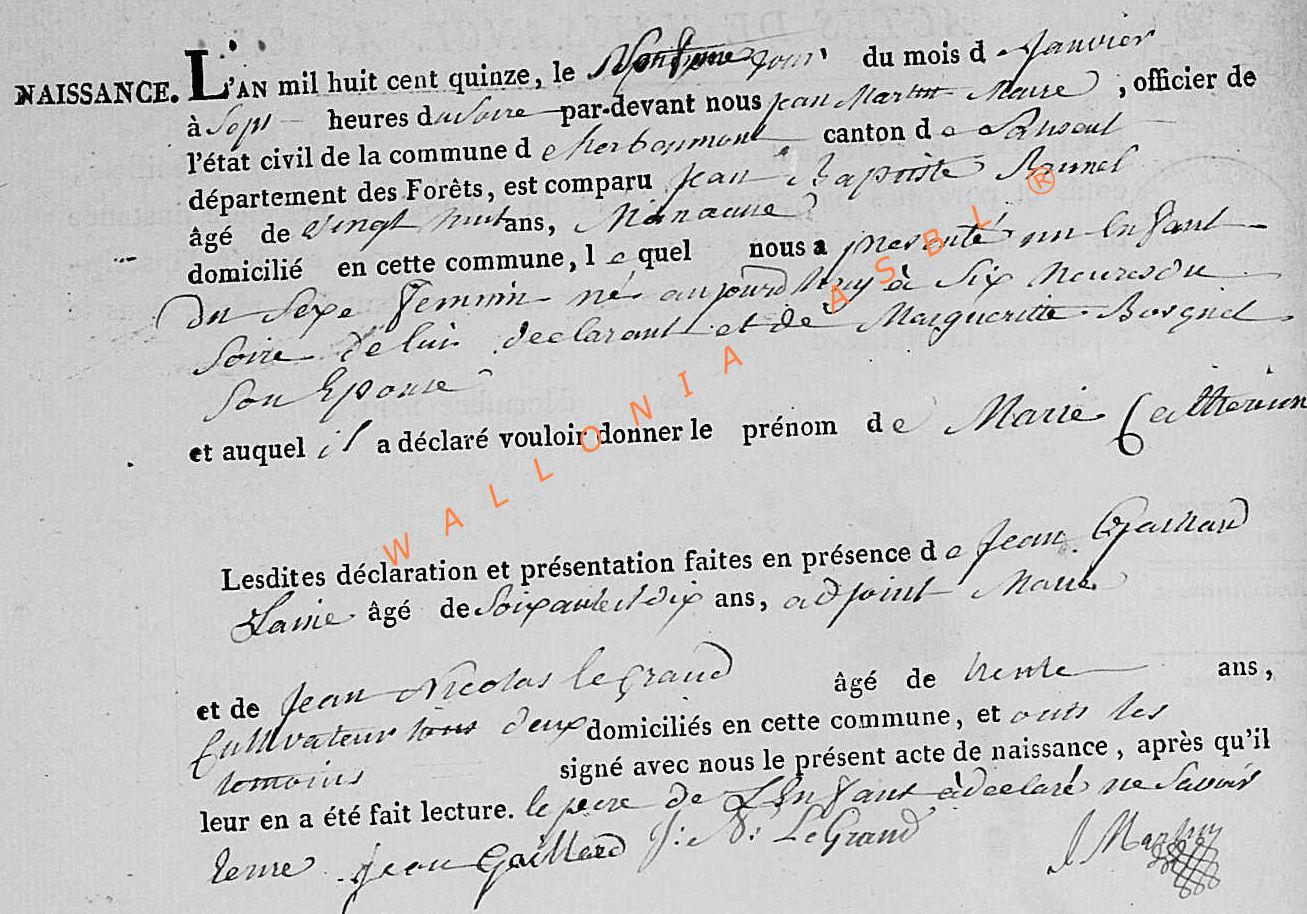 NAISSANCE. L'AN mil huit cent quinze, le jour du mois de Janvier
à Sept heures du Soire par-devant nous Jean Martin Maire, officier de
l'état civil de la commune de herbeumont canton de
département des Forêts, est comparu Jean Baptiste Brunel
âgé de vingt huit ans, Manauvre
domicilié en cette commune, lequel nous a presenté un Enfant
Du Sexe Feminin né aujourd'huy à Six heures du
Soire de lui declarant et de Margueritte Bosquet
Son Epouse
et auquel il a déclaré vouloir donner le prénom de Marie Catherine
Lesdites déclaration et présentation faites en présence de Jean Gaillard
Laine âgé de Soixante et dix ans, adjoint Maire
et de Jean Nicolas le Grand âgé de trente ans,
Cultivateur tous deux domiciliés en cette commune, et onts les
temoins signé avec nous le présent acte de naissance, après qu'il
leur en a été fait lecture. le pere de L'Enfant à declaré ne Savoir
Jean Gaillard J: N: LeGrand J Martin
WALLONIA ASBL ®